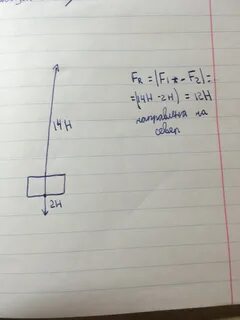 14H
2H
F_R = |F_1 - F_2| =
= |14H - 2H| = 12H
направлена на
север